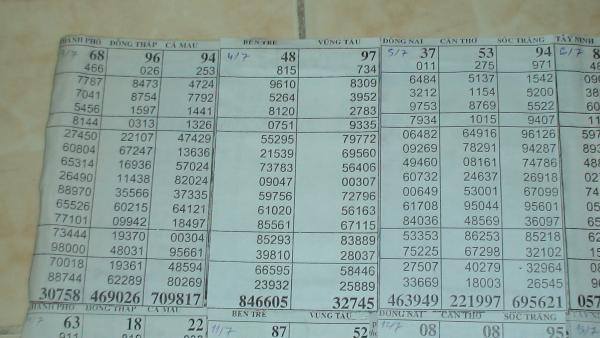 THÀNH PHỐ ĐỒNG THÁP CÀ MAU BẾN TRE VŨNG TÀU ĐỒNG NAI CẦN THƠ SÓC TRĂNG TÂY NINH
3/7 68 96 94 4/7 48 97 5/7 37 53 94 6/7
466 026 253 815 734 011 275 971
7787 8473 4724 9610 8309 6484 5137 1542
7041 8754 7792 5264 3952 3212 1154 5200
5456 1597 1441 8120 2783 9753 8769 5522
8144 0313 1326 0751 9335 7934 1015 9407
27450 22107 47429 55295 79772 06482 64916 96126
60804 67247 13636 21539 69560 09269 78291 94287
65314 16936 57024 73783 56406 49460 08161 74786
26490 11438 82024 09047 00307 60732 24637 26918
88970 35566 37335 59756 72796 00649 53001 67099
65526 60215 64121 61020 56163 61708 95044 95601
77101 09942 18497 85561 67115 84036 48569 36097
73444 19370 00304 85293 83889 53353 86253 85218
98000 48031 95661 39810 28037 75225 67298 32102
70018 19361 48594 66595 58446 27507 40279 32964
88744 62289 80269 23932 25889 33669 18003 26545
30758 469026 709817 846605 32745 463949 221997 695621 057
THÀNH PHỐ ĐỒNG THÁP CÀ MAU BẾN TRE VŨNG TÀU ĐỒNG NAI CẦN THƠ SÓC TRĂNG TÂY NINH
63 18 22 11/7 87 52 12/7 08 08 95